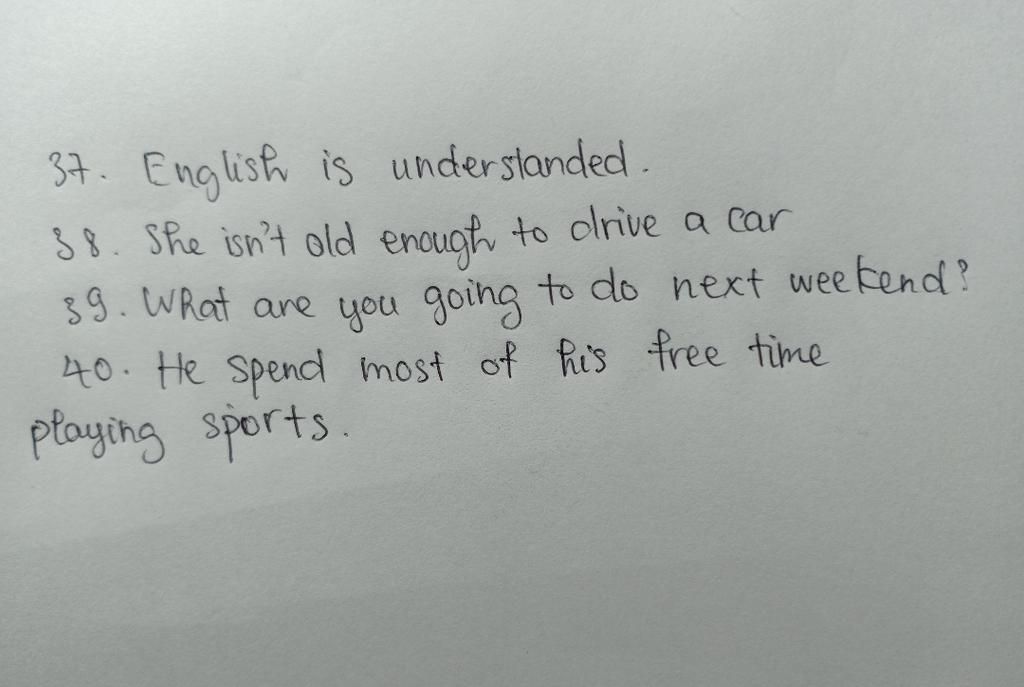 37. English is understanded.
38. She isn't old enough to drive a car
39. What are you going to do next weekend?
40. He spend most of his free time
playing sports.